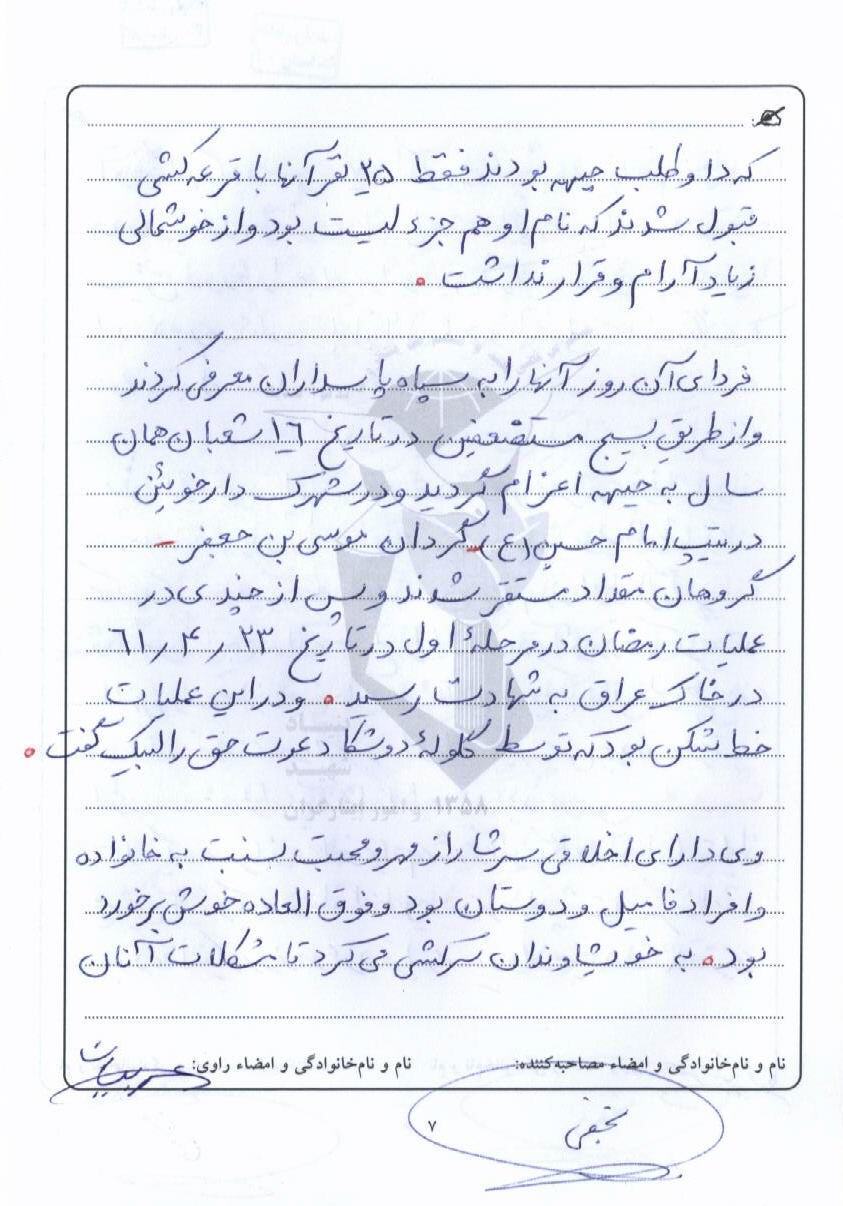 که داوطلب جبهه بودند فقط ۳۵ نفر آنها با قرعه کشی
قبول شدند که نام او هم جزء لیست بود و از خوشحالی
زیاد آرام و قرار نداشت .
فردای آن روز آنها را به سپاه پاسداران معرفی کردند
و از طریق بسیج مستضعفین در تاریخ ۱۶ شعبان همان
سال به جبهه اعزام گردید و در شهرک دارخوئین
در تیپ امام حسین (ع) - گردان موسی بن جعفر -
گروهان مقداد مستقر شدند و پس از چندی در
عملیات رمضان در مرحلهٔ اول در تاریخ ۲۳ ر ۴ ر ۶۱
در خاک عراق به شهادت رسید . و در این عملیات
خط شکن بود که توسط گلولهٔ دوشکا دعوت حق را لبیک گفت .
بنیاد
شهید
۱۳۵۸
وی دارای اخلاقی سرشار از مهر و محبت نسبت به خانواده
و افراد فامیل و دوستان بود و فوق العاده خوش برخورد
بود . به خویشاوندان سرکشی می کرد تا مشکلات آنان
نام و نام‌خانوادگی و امضاء مصاحبه‌کننده: نام و نام‌خانوادگی و امضاء راوی:
نجفی
۷